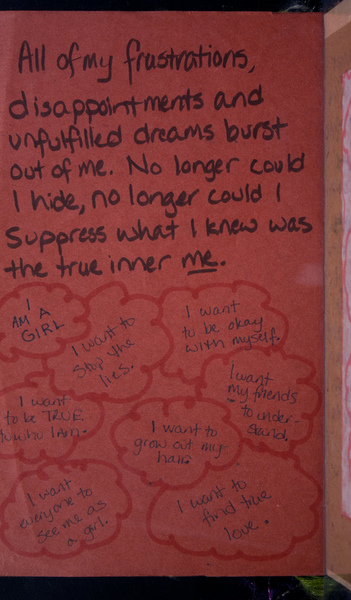 All of my frustrations,
disappointments and
unfulfilled dreams burst
out of me. No longer could
I hide, no longer could I
suppress what I knew was
the true inner me.
I
AM A
GIRL
I want to
stop the
lies.
I want
to be okay
with myself.
I want
my friends
to under-
stand.
I want
to be TRUE
to who I am.
I want to
grow out my
hair.
I want
everyone to
see me as
a girl.
I want to
find true
love.